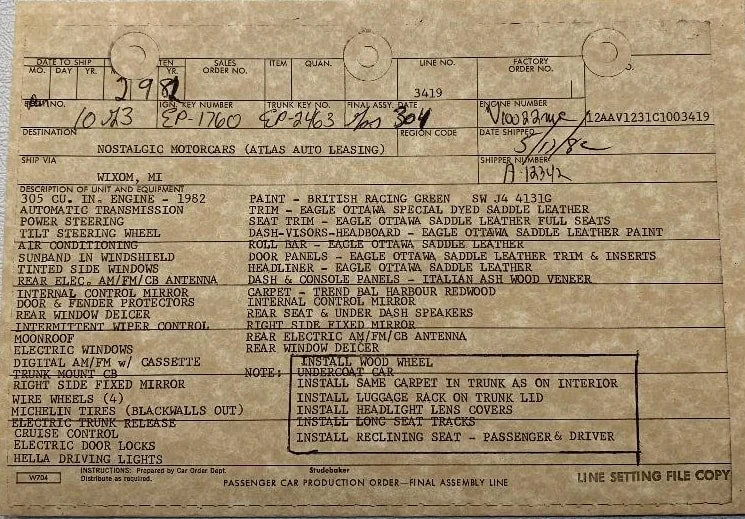 DATE TO SHIP TEN SALES ITEM QUAN. LINE NO. FACTORY
MO. DAY YR. YR. ORDER NO. ORDER NO.
29 82 3419
NO. IGN. KEY NUMBER TRUNK KEY NO. FINAL ASSY. DATE ENGINE NUMBER
1023 EP-1760 EP-2463 304 V10022MC 12AAV1231C1003419
DESTINATION REGION CODE DATE SHIPPED
NOSTALGIC MOTORCARS (ATLAS AUTO LEASING) 3/11/82
SHIP VIA SHIPPER NUMBER
WIXOM, MI A-12342
DESCRIPTION OF UNIT AND EQUIPMENT
305 CU. IN. ENGINE - 1982 PAINT - BRITISH RACING GREEN SW J4 4131G
AUTOMATIC TRANSMISSION TRIM - EAGLE OTTAWA SPECIAL DYED SADDLE LEATHER
POWER STEERING SEAT TRIM - EAGLE OTTAWA SADDLE LEATHER FULL SEATS
TILT STEERING WHEEL DASH-VISORS-HEADBOARD - EAGLE OTTAWA SADDLE LEATHER PAINT
AIR CONDITIONING ROLL BAR - EAGLE OTTAWA SADDLE LEATHER
SUNBAND IN WINDSHIELD DOOR PANELS - EAGLE OTTAWA LEATHER TRIM & INSERTS
TINTED SIDE WINDOWS HEADLINER - EAGLE OTTAWA SADDLE LEATHER
REAR ELEC. AM/FM/CB ANTENNA DASH & CONSOLE PANELS - ITALIAN ASH WOOD VENEER
INTERNAL CONTROL MIRROR CARPET - TREND BAL HARBOUR REDWOOD
DOOR & FENDER PROTECTORS INTERNAL CONTROL MIRROR
REAR WINDOW DEICER REAR SEAT & UNDER DASH SPEAKERS
INTERMITTENT WIPER CONTROL RIGHT SIDE FIXED MIRROR
MOONROOF REAR ELECTRIC AM/FM/CB ANTENNA
ELECTRIC WINDOWS REAR WINDOW DEICER
DIGITAL AM/FM w/ CASSETTE INSTALL WOOD WHEEL
TRUNK MOUNT CB NOTE: UNDERCOAT CAR
RIGHT SIDE FIXED MIRROR INSTALL SAME CARPET IN TRUNK AS ON INTERIOR
WIRE WHEELS (4) INSTALL LUGGAGE RACK ON TRUNK LID
MICHELIN TIRES (BLACKWALLS OUT) INSTALL HEADLIGHT LENS COVERS
ELECTRIC TRUNK RELEASE INSTALL LONG SEAT TRACKS
CRUISE CONTROL INSTALL RECLINING SEAT - PASSENGER & DRIVER
ELECTRIC DOOR LOCKS
HELLA DRIVING LIGHTS
W704 INSTRUCTIONS: Prepared by Car Order Dept. Studebaker
Distribute as required. PASSENGER CAR PRODUCTION ORDER—FINAL ASSEMBLY LINE LINE SETTING FILE COPY